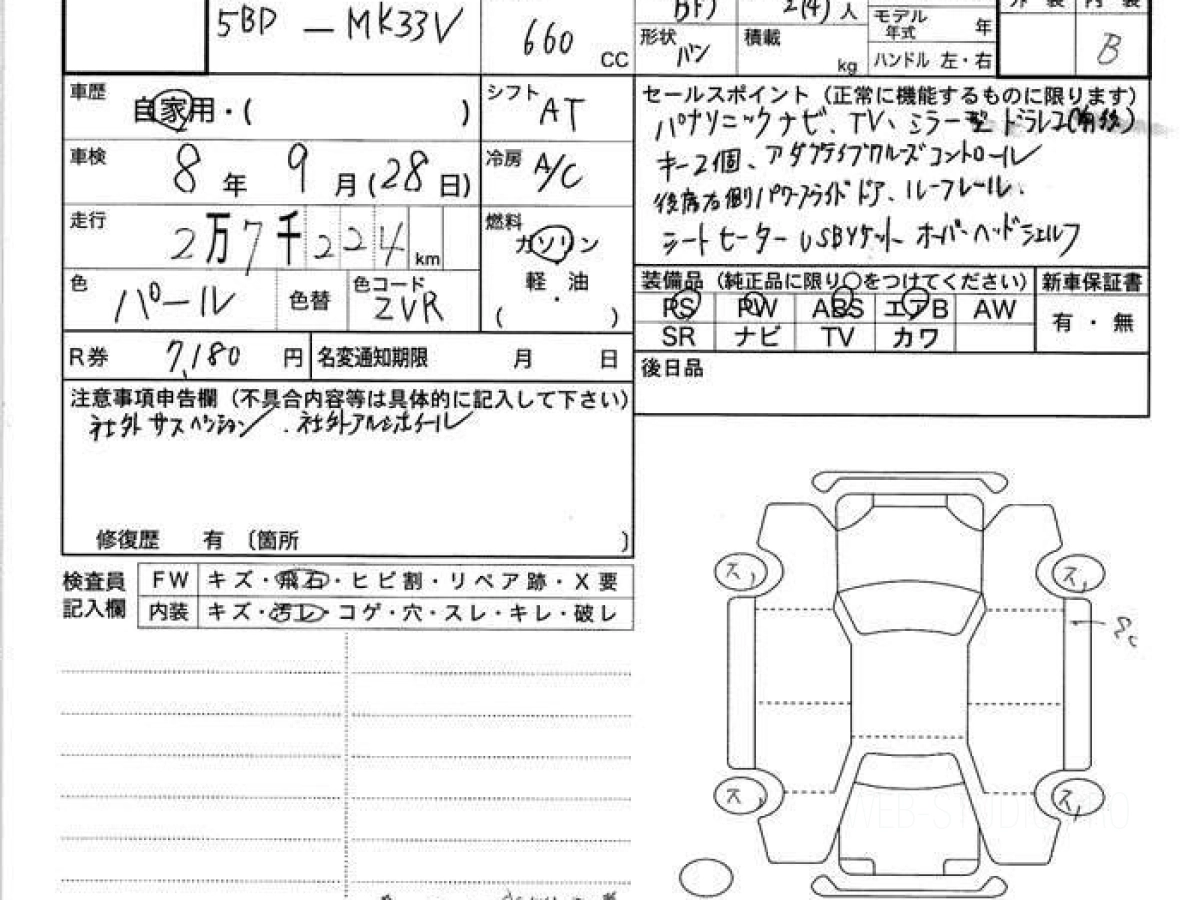 5BD － MK33V
660 CC
2(4) 人
形状 バン
積載 kg
モデル年式 年
ハンドル 左・右
B
車歴 自家用・( )
シフト AT
車検 8 年 9 月 (28 日)
冷房 A/C
走行 2万7千224 km
燃料 ガソリン
軽・油
( )
色 パール 色替 色コード ZVR
R券 7,180 円 名変通知期限 月 日
セールスポイント (正常に機能するものに限ります)
パナソニックナビ、TV、ミラー型ドラレコ(前後)
キー2個、アダプティブクルーズコントロール
後席右側パワースライドドア、ルーフレール、
シートヒーター USBソケット オーバーヘッドシェルフ
装備品 (純正品に限り○をつけてください) 新車保証書
PS PW ABS エアB AW
有・無
SR ナビ TV カワ
後日品
注意事項申告欄 (不具合内容等は具体的に記入して下さい)
社外サスペンション、社外アルミホイール
修復歴 有 〔箇所 〕
検査員記入欄
FW キズ・飛石・ヒビ割・リペア跡・X要
内装 キズ・汚レ・コゲ・穴・スレ・キレ・破レ
ス ス
ス ス
WEB-STUDIO.PRO